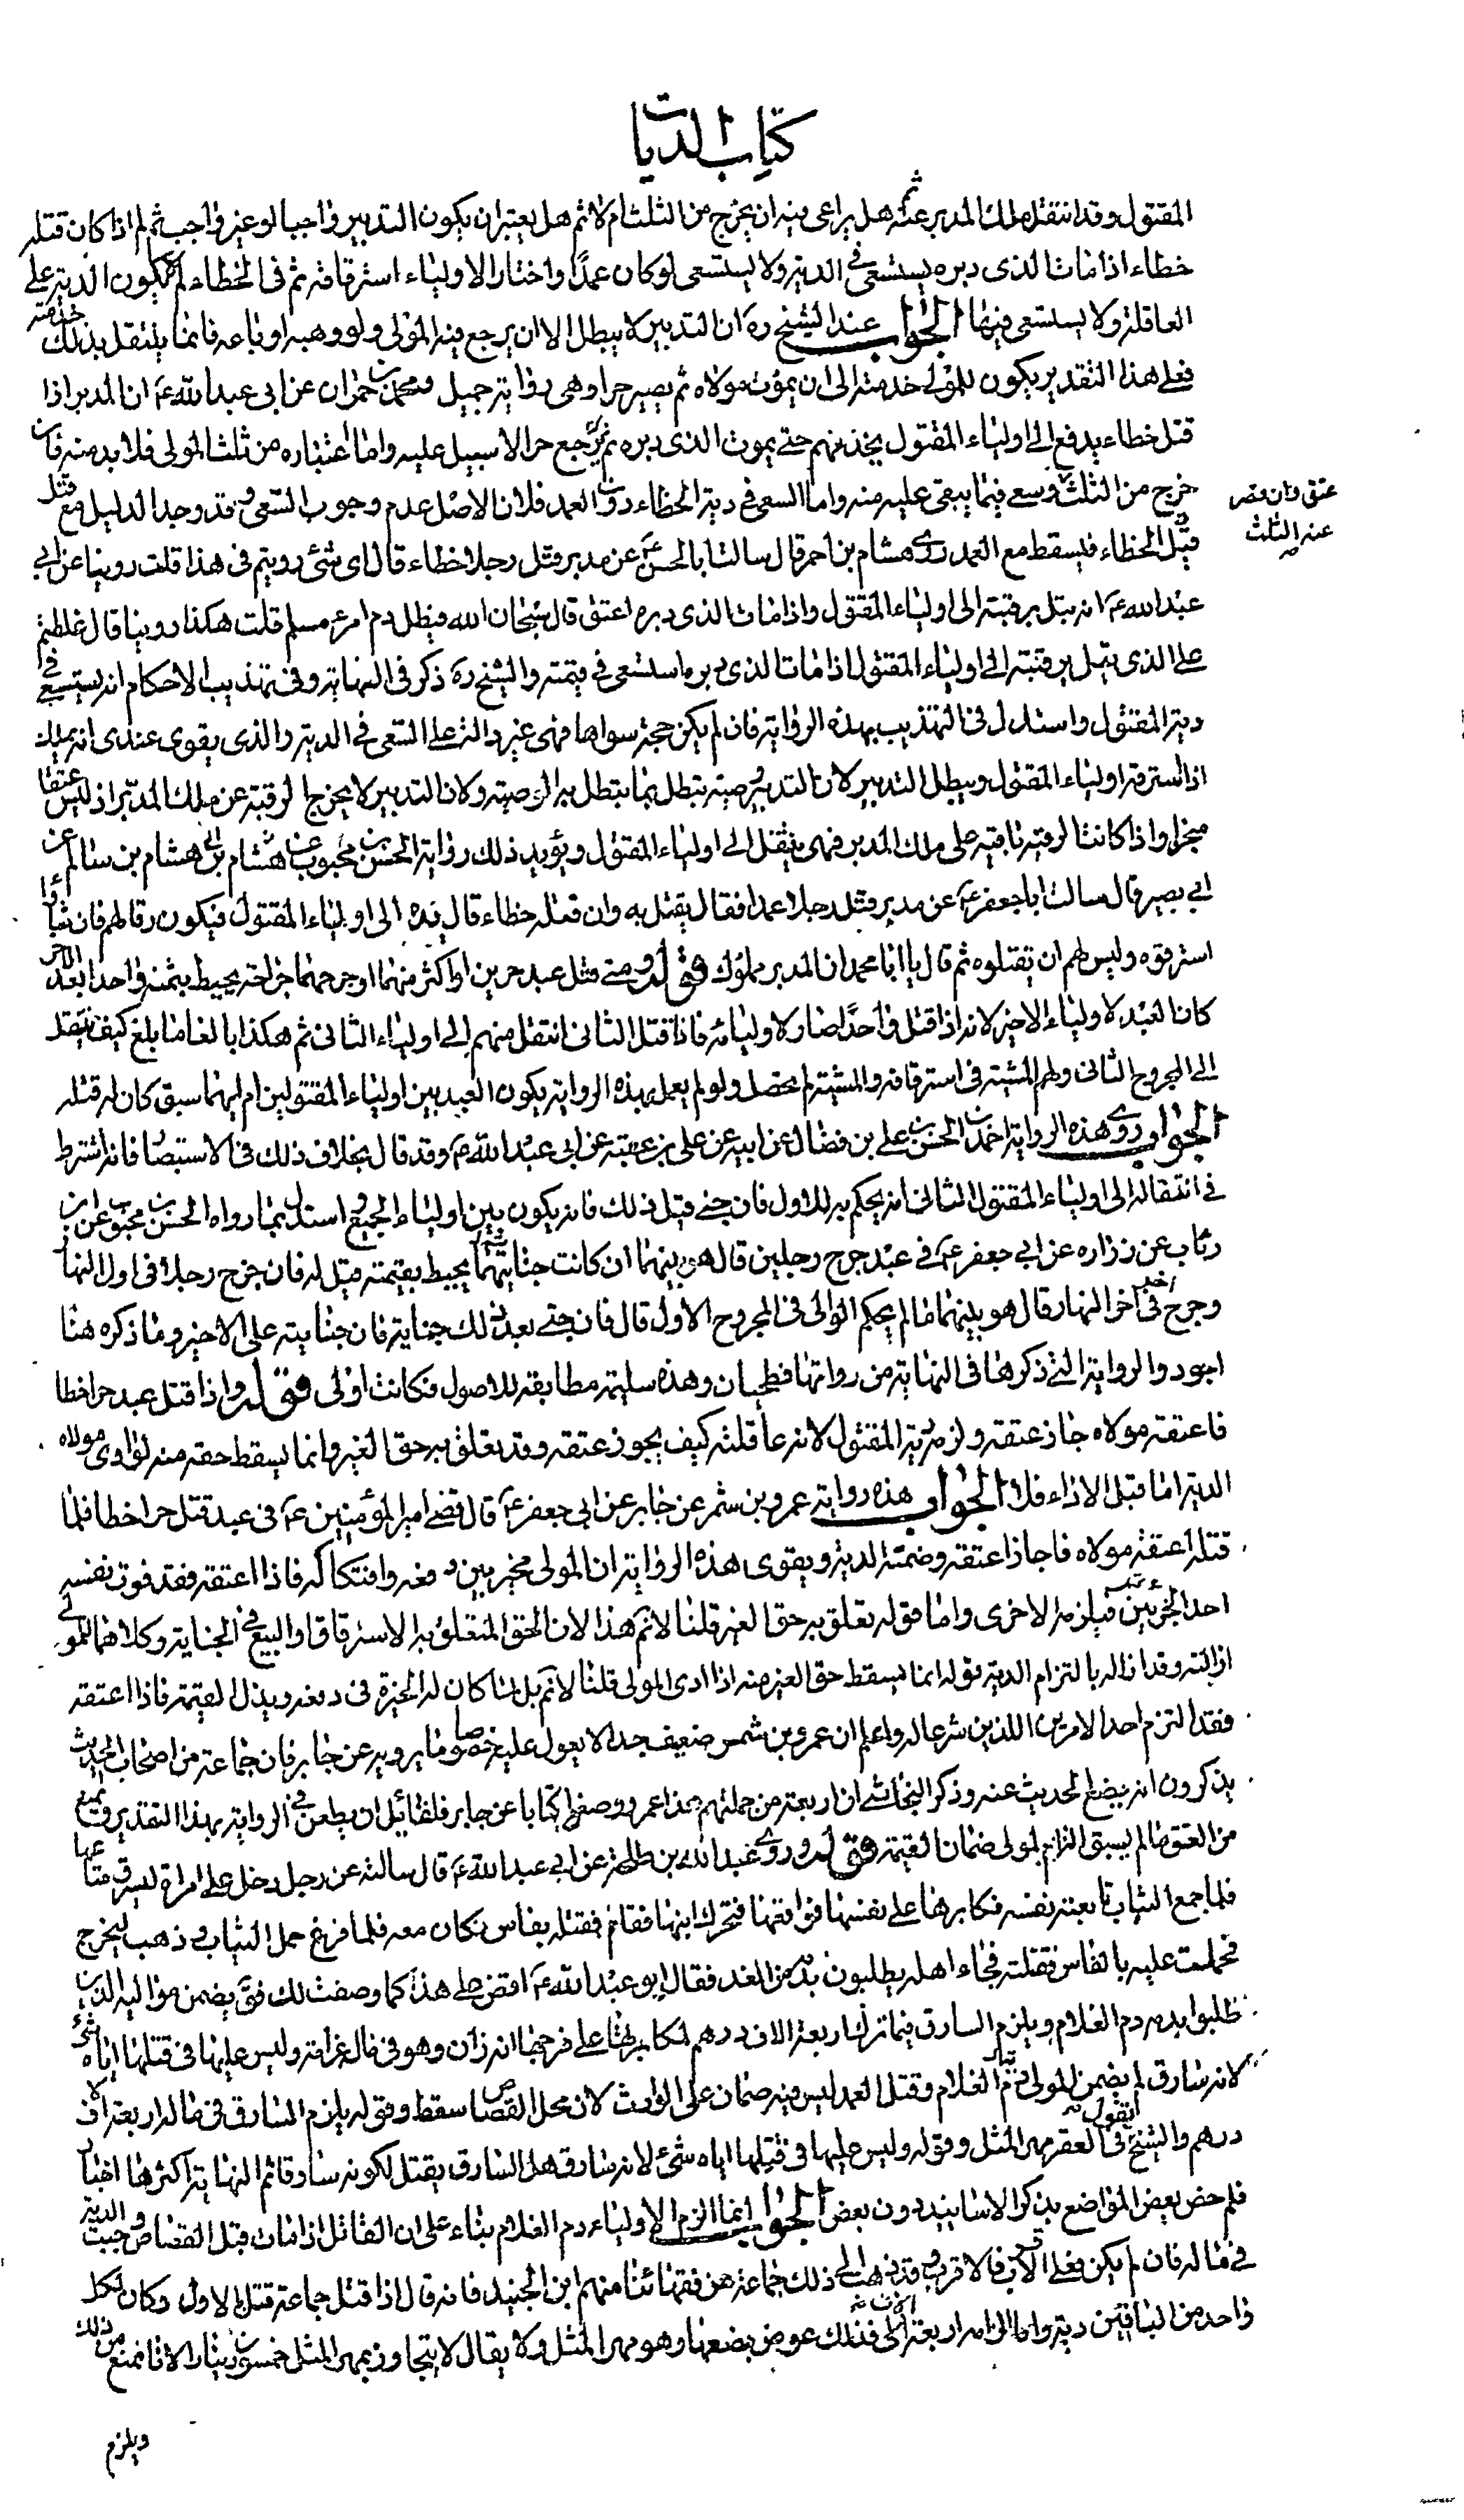 كتاب الديات
المقتول وقد انتقل ملك المدبر عنه ثم هل يراعى فيه ان يخرج من الثلث ام لا ثم هل يعتبر ان يكون التدبير واجبا او غير واجب ثم لم اذا كان قتله
خطاء اذا مات الذى دبره يستسعى فى الدية ولا يستسعى لو كان عمدا واختار الاولياء استرقاقه ثم فى الخطاء لم لا يكون الدية على
العاقلة ولا يستسعى فيها الجواب عند الشيخ ره ان التدبير لا يبطل الا ان يرجع فيه المولى ولو وهبه او باعه فانما ينتقل بذلك خدمته
فعلى هذا التقدير يكون للمولى خدمته الى ان يموت مولاه ثم يصير حرا وهى رواية جميل ومحمد بن حمران عن ابى عبد الله ع ان المدبر اذا
قتل خطاء يدفع الى اولياء المقتول يخدمهم حتى يموت الذى دبره ثم يرجع حرا لا سبيل عليه واما اعتباره من ثلث المولى فلا بد منه فان
خرج من الثلث وسعى فيما يبقى عليه منه واما السعى فى دية الخطاء دون العمد فلان الاصل عدم وجوب السعى وقد وجد الدليل مع قتل
عتق وان قصر
عنه الثلث
قتل الخطاء فيسقط مع العمد روى هشام بن احمر قال سالت ابا الحسن ع عن مدبر قتل رجلا خطاء قال اى شئ رويتم فى هذا قلت روينا عن ابى
عبد الله ع انه يتل برقبته الى اولياء المقتول واذا مات الذى دبره اعتق قال سبحان الله فيطل دم امرء مسلم قلت هكذا روينا قال غلطتم
على الذى يتل برقبته الى اولياء المقتول اذا مات الذى دبره استسعى فى قيمته والشيخ ره ذكر فى النهاية وفى تهذيب الاحكام انه يستسعى فى
دية المقتول واستدل فى التهذيب بهذه الرواية فان لم يكن حجة سواها فهى غير دالة على السعى فى الدية والذى يقوى عندى انه يملك
اذا استرقه اولياء المقتول ويبطل التدبير لان التدبير وصية تبطل بما يبطل به الوصية ولان التدبير لا يخرج الرقبة عن ملك المدبر اذ ليس عتقا
منجزا واذا كانت الرقبة باقية على ملك المدبر فهى ينتقل الى اولياء المقتول ويؤيد ذلك رواية الحسن بن محبوب عن هشام بن هشام بن سالم عن
ابى بصير قال سالت ابا جعفر ع عن مدبر قتل رجلا عمدا فقال يقتل به وان قتله خطاء قال يده الى اولياء المقتول فيكون رقا لهم فان شاؤا
استرقوه وليس لهم ان يقتلوه ثم قال يا ابا محمد ان المدبر مملوك قوله ومتى قتل عبد حرين او اكثر منهما او جرحهما جراحة يحيط بثمنه واحدا بعد الاخر
كان العبد لاولياء الاخير لانه اذا قتل واحدا صار لاوليائه فاذا قتل الثانى انتقل منهم الى اولياء الثانى ثم هكذا بالغا ما بلغ كيف ينتقل
الى المجروح الثانى ولهم المشية فى استرقاقه والمشية لم تحصل ولو لم يعمل بهذه الرواية يكون العبد بين اولياء المقتولين ام ايهما سبق كان له قتله
الجواب روى هذه الرواية احمد بن الحسن بن على بن فضال عن ابيه عن على بن عقبة عن ابى عبد الله ع وقد قال بخلاف ذلك فى الاستبصار فانه اشترط
فى انتقاله الى اولياء المقتول الثانى انه يحكم به للاول فان جنى قبل ذلك فانه يكون بين اولياء الجميع واستدل بما رواه الحسن بن محبوب عن ابن
رئاب عن زراره عن ابى جعفر ع فى عبد جرح رجلين قال هو بينهما ان كانت جنايتهما يحيط بقيمته قيل له فان جرح رجلا فى اول النهار
وجرح اخر فى اخر النهار قال هو بينهما ما لم يحكم الوالى فى المجروح الاول قال فان جنى بعد ذلك جناية فان جنايته على الاخير وما ذكره هنا
اجود والرواية التى ذكرها فى النهاية من رواتها فطحيان وهذه سليمة مطابقة للاصول فكانت اولى قوله واذا قتل عبد حرا خطا
فاعتقه مولاه جاز عتقه ولزمه دية المقتول لانه عاقلته كيف يجوز عتقه وقد تعلق به حق الغير وانما يسقط حقه منه لو ادى مولاه
الدية اما قبل الاداء فلا الجواب هذه رواية عمرو بن شمر عن جابر عن ابى جعفر ع قال قضى امير المؤمنين ع فى عبد قتل حرا خطا فلما
قتله اعتقه مولاه فاجاز عتقه وضمنه الدية ويقوى هذه الرواية ان المولى مخير بين دفعه وافتكاكه فاذا اعتقه فقد فوت نفسه
احد الخيرتين فيلزمه الاخرى واما قوله تعلق به حق الغير قلنا لا نم هذا لان الحق المتعلق به الاسترقاق او البيع فى الجناية وكلاهما للمولى
ازالته وقد ازاله بالتزام الدية قوله انما يسقط حق الغير منه اذا ادى المولى قلنا لا نم بل لما كان له الخيرة فى دفعه وبذل القيمة فاذا اعتقه
فقد التزم احد الامرين اللذين شرعا له واعلم ان عمرو بن شمر ضعيف جدا لا يعول عليه خصوصا ما يرويه عن جابر فان جماعة من اصحاب الحديث
يذكرون انه يضع الحديث عنه وذكر النجاشى ان اربعة من جملتهم هذا عمرو وصنفوا كتابا عن جابر فلقائل ان يطعن فى الرواية بهذا التقدير ويمنع
من العتق ما لم يسبق التزام المولى ضمان القيمة قوله وروى عبد الله بن طلحة عن ابى عبد الله ع قال سالته عن رجل دخل على امراة ليسرق متاعها
فلما جمع الثياب تابعته نفسه فكابرها على نفسها فواقعها فتحرك ابنها فقام فقتله بفاس كان معه فلما فرغ حمل الثياب وذهب ليخرج
فحملت عليه بالفاس فقتلته فجاء اهله يطلبون بدمه من الغد فقال ابو عبد الله ع اقض على هذا كما وصفت لك فق يضمن مواليه الذين
طلبوا بدمه دم الغلام ويلزم السارق فيما ترك اربعة الاف درهم لمكابرتها على فرجها انه زان وهو فى ماله غرامة وليس عليها فى قتلها اياه شئ
لانه سارق لم يضمن المولى دم الغلام وقتل العمد ليس فيه ضمان على الوارث لان محل القصاص سقط وقوله يلزم السارق فى ماله اربعة الاف
درهم والشيخ يقول فى العقر مهر المثل وقوله وليس عليها فى قتلها اياه شئ لانه سارق هل السارق يقتل لكونه سارقا ثم النهاية اكثرها اخبار
فلم خص بعض المواضع بذكر الاسانيد دون بعض الجواب انما الزم الاولياء دم الغلام بناء على ان القاتل اذا مات قبل القصاص وجبت الدية
فى ماله فان لم يكن فعلى الاقرب فالاقرب وقد ذهب الى ذلك جماعة من فقهائنا منهم ابن الجنيد فانه قال اذا قتل جماعة قتل الاول وكان لكل
واحد من الباقين دية واما الزامه اربعة الاف فذلك عوض بضعها وهو مهر المثل ولا يقال لا يتجاوز بمهر المثل خمسون دينارا لانا نمنع من ذلك
ويلزم